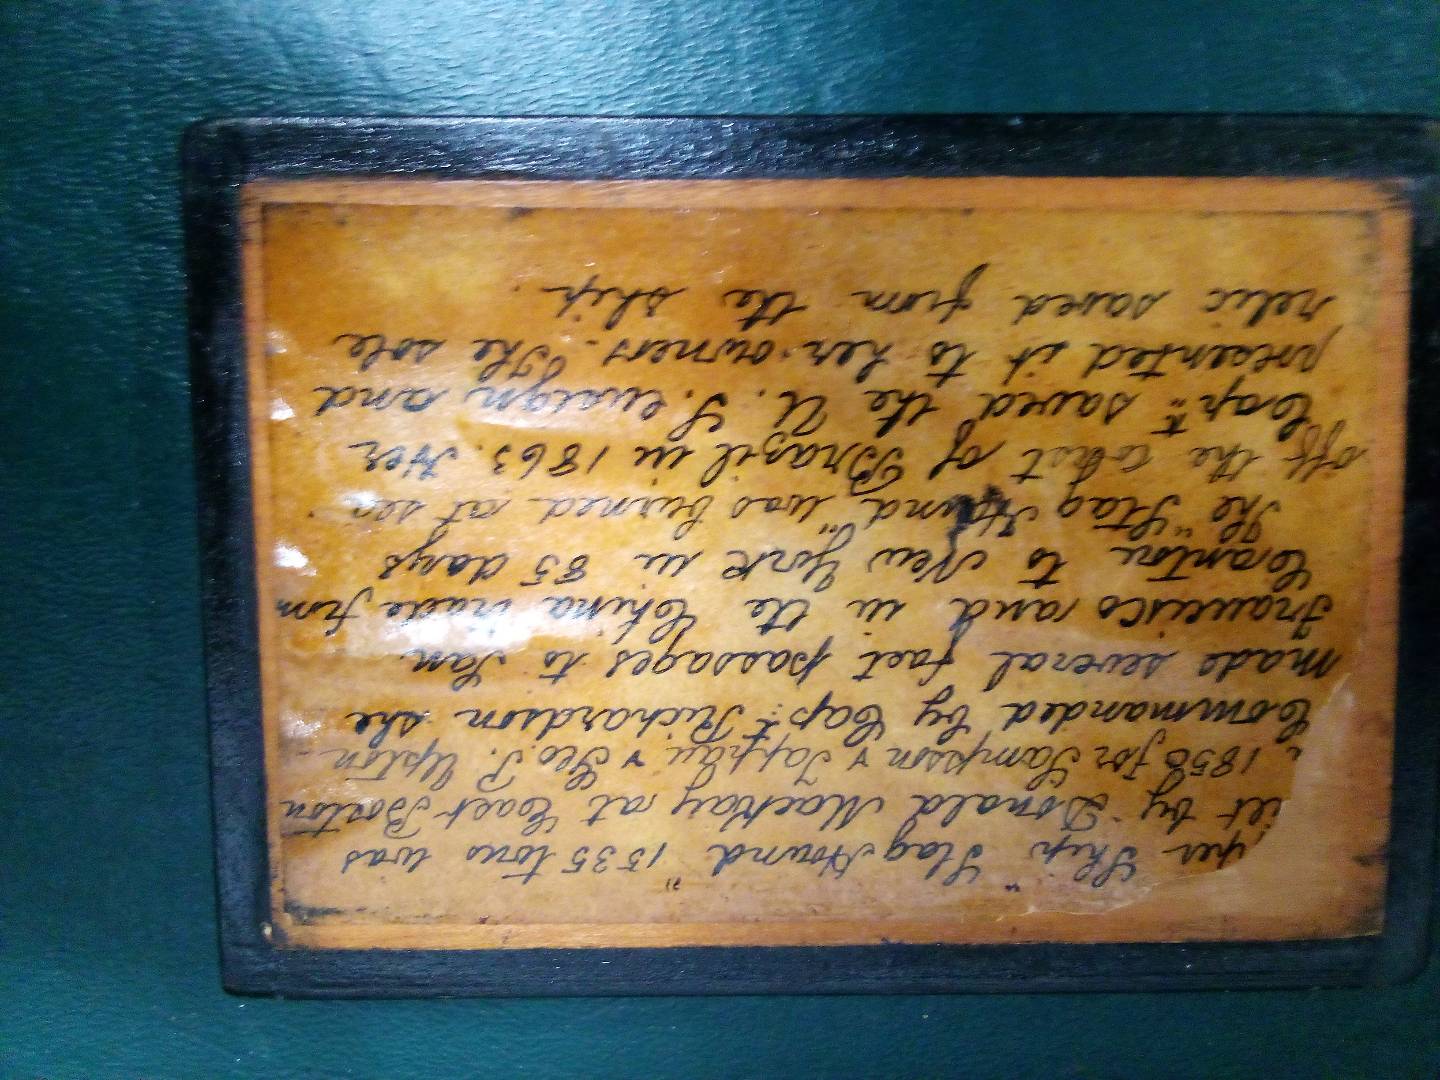 per Ship "Stag Hound" 1535 tons was
ilt by Donald MacKay at East Boston
1850 for Sampson & Tappan & Geo. P. Upton -
Commanded by Capt. Richardson she
made several fast passages to San
Francisco and in the China trade from
Canton to New York in 85 days
The "Stag Hound" was burned at sea
off the coast of Brazil in 1863. Her
Capt. saved the U. S. ensign and
presented it to her owners - The sole
relic saved from the ship.